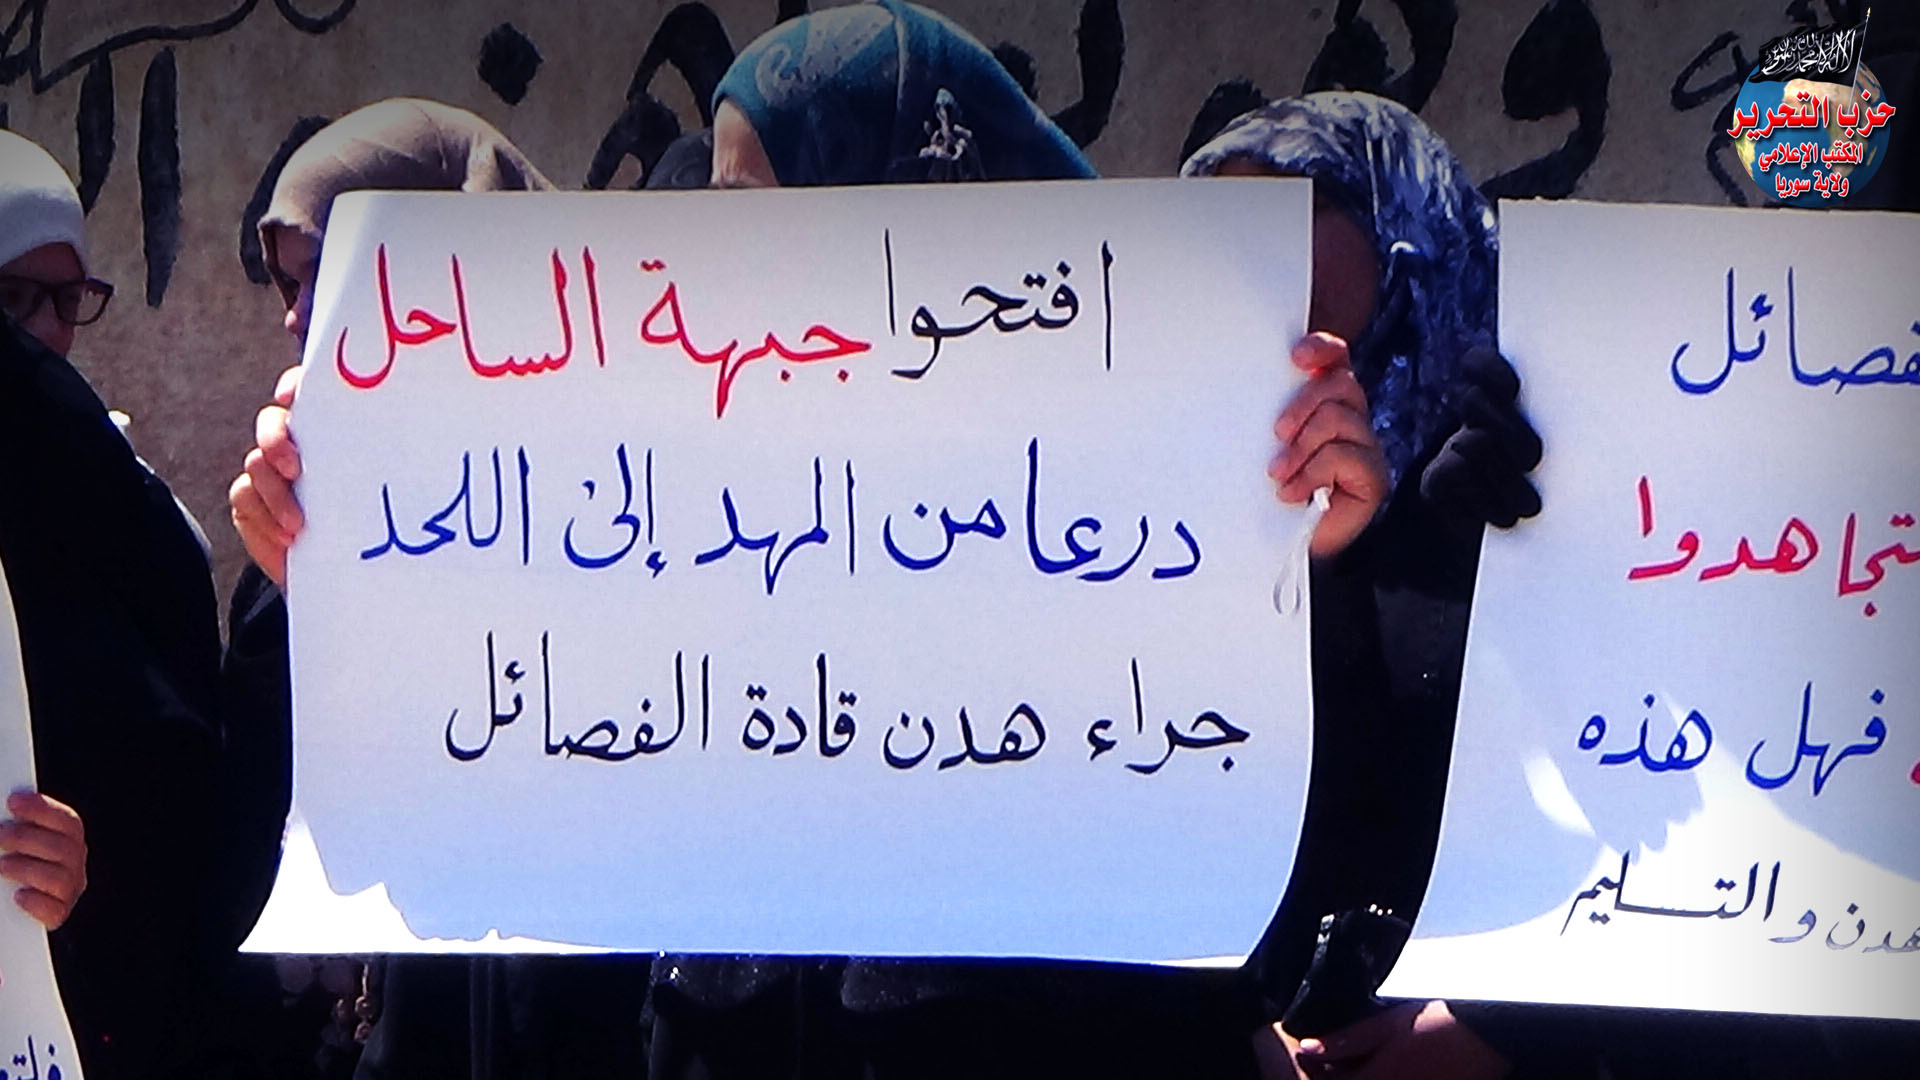 حزب التحرير
المكتب الإعلامي
ولاية سوريا
افتحوا جبهة الساحل
درعا من المهد إلى اللحد
جراء هدن قادة الفصائل
فصائل
تجاهدوا
فهل هذه
هدن والتسليم